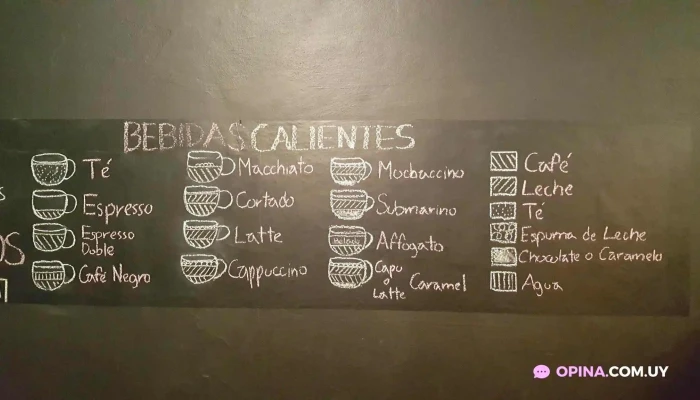 BEBIDAS CALIENTES
Té
Espresso
Espresso
Doble
Café Negro
Macchiato
Cortado
Latte
Cappuccino
Mochaccino
Submarino
Helado
Affogato
Capu
o
Latte
Caramel
Café
Leche
Té
Espuma de Leche
Chocolate o Caramelo
Agua
OS
OPINA.COM.UY